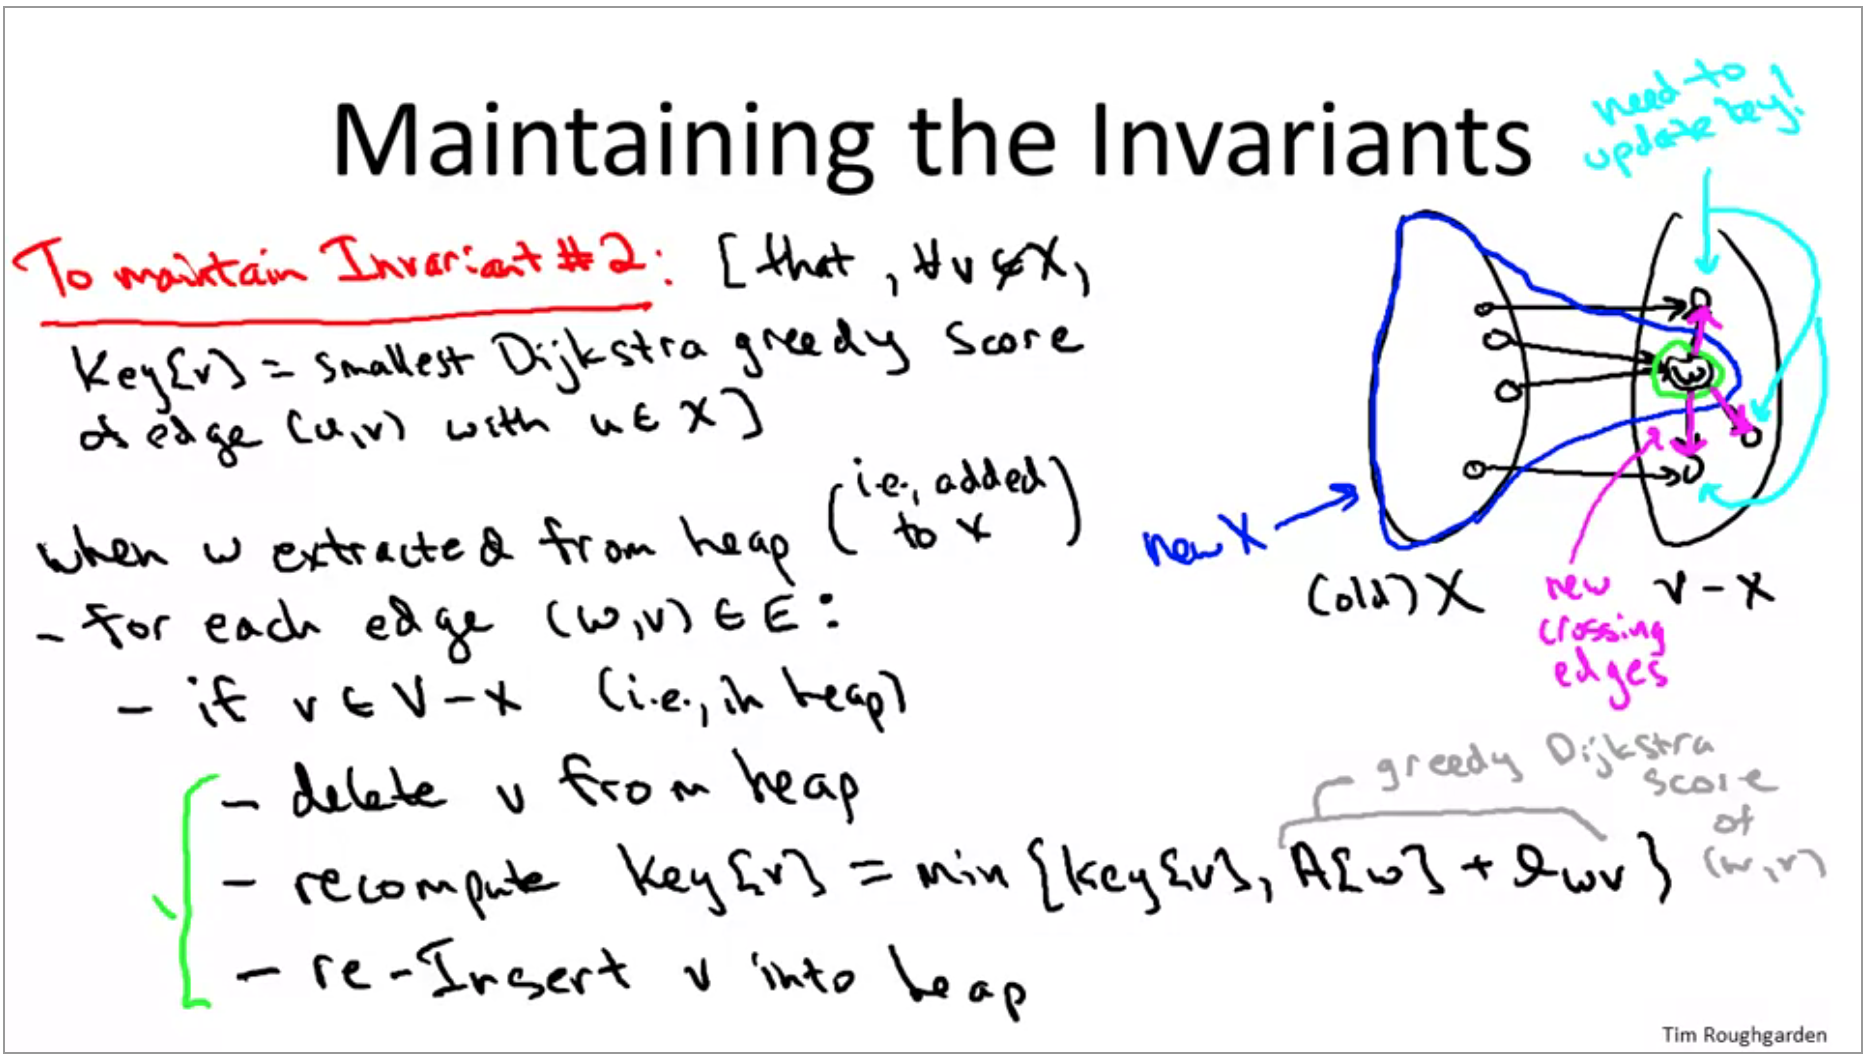 Maintaining the Invariants
need to
update key!
To maintain Invariant #2: [that, ∀v∉X,
Key[v] = smallest Dijkstra greedy score
of edge (u,v) with u∈X]
when w extracted from heap (i.e., added
to X)
- for each edge (w,v) ∈ E:
- if v ∈ V-X (i.e., in heap)
- delete v from heap
- recompute key[v] = min{key[v], A[w] + l_wv}
- re-Insert v into heap
w
new X
(old) X
V-X
new
crossing
edges
greedy Dijkstra
score
of
(w,v)
Tim Roughgarden